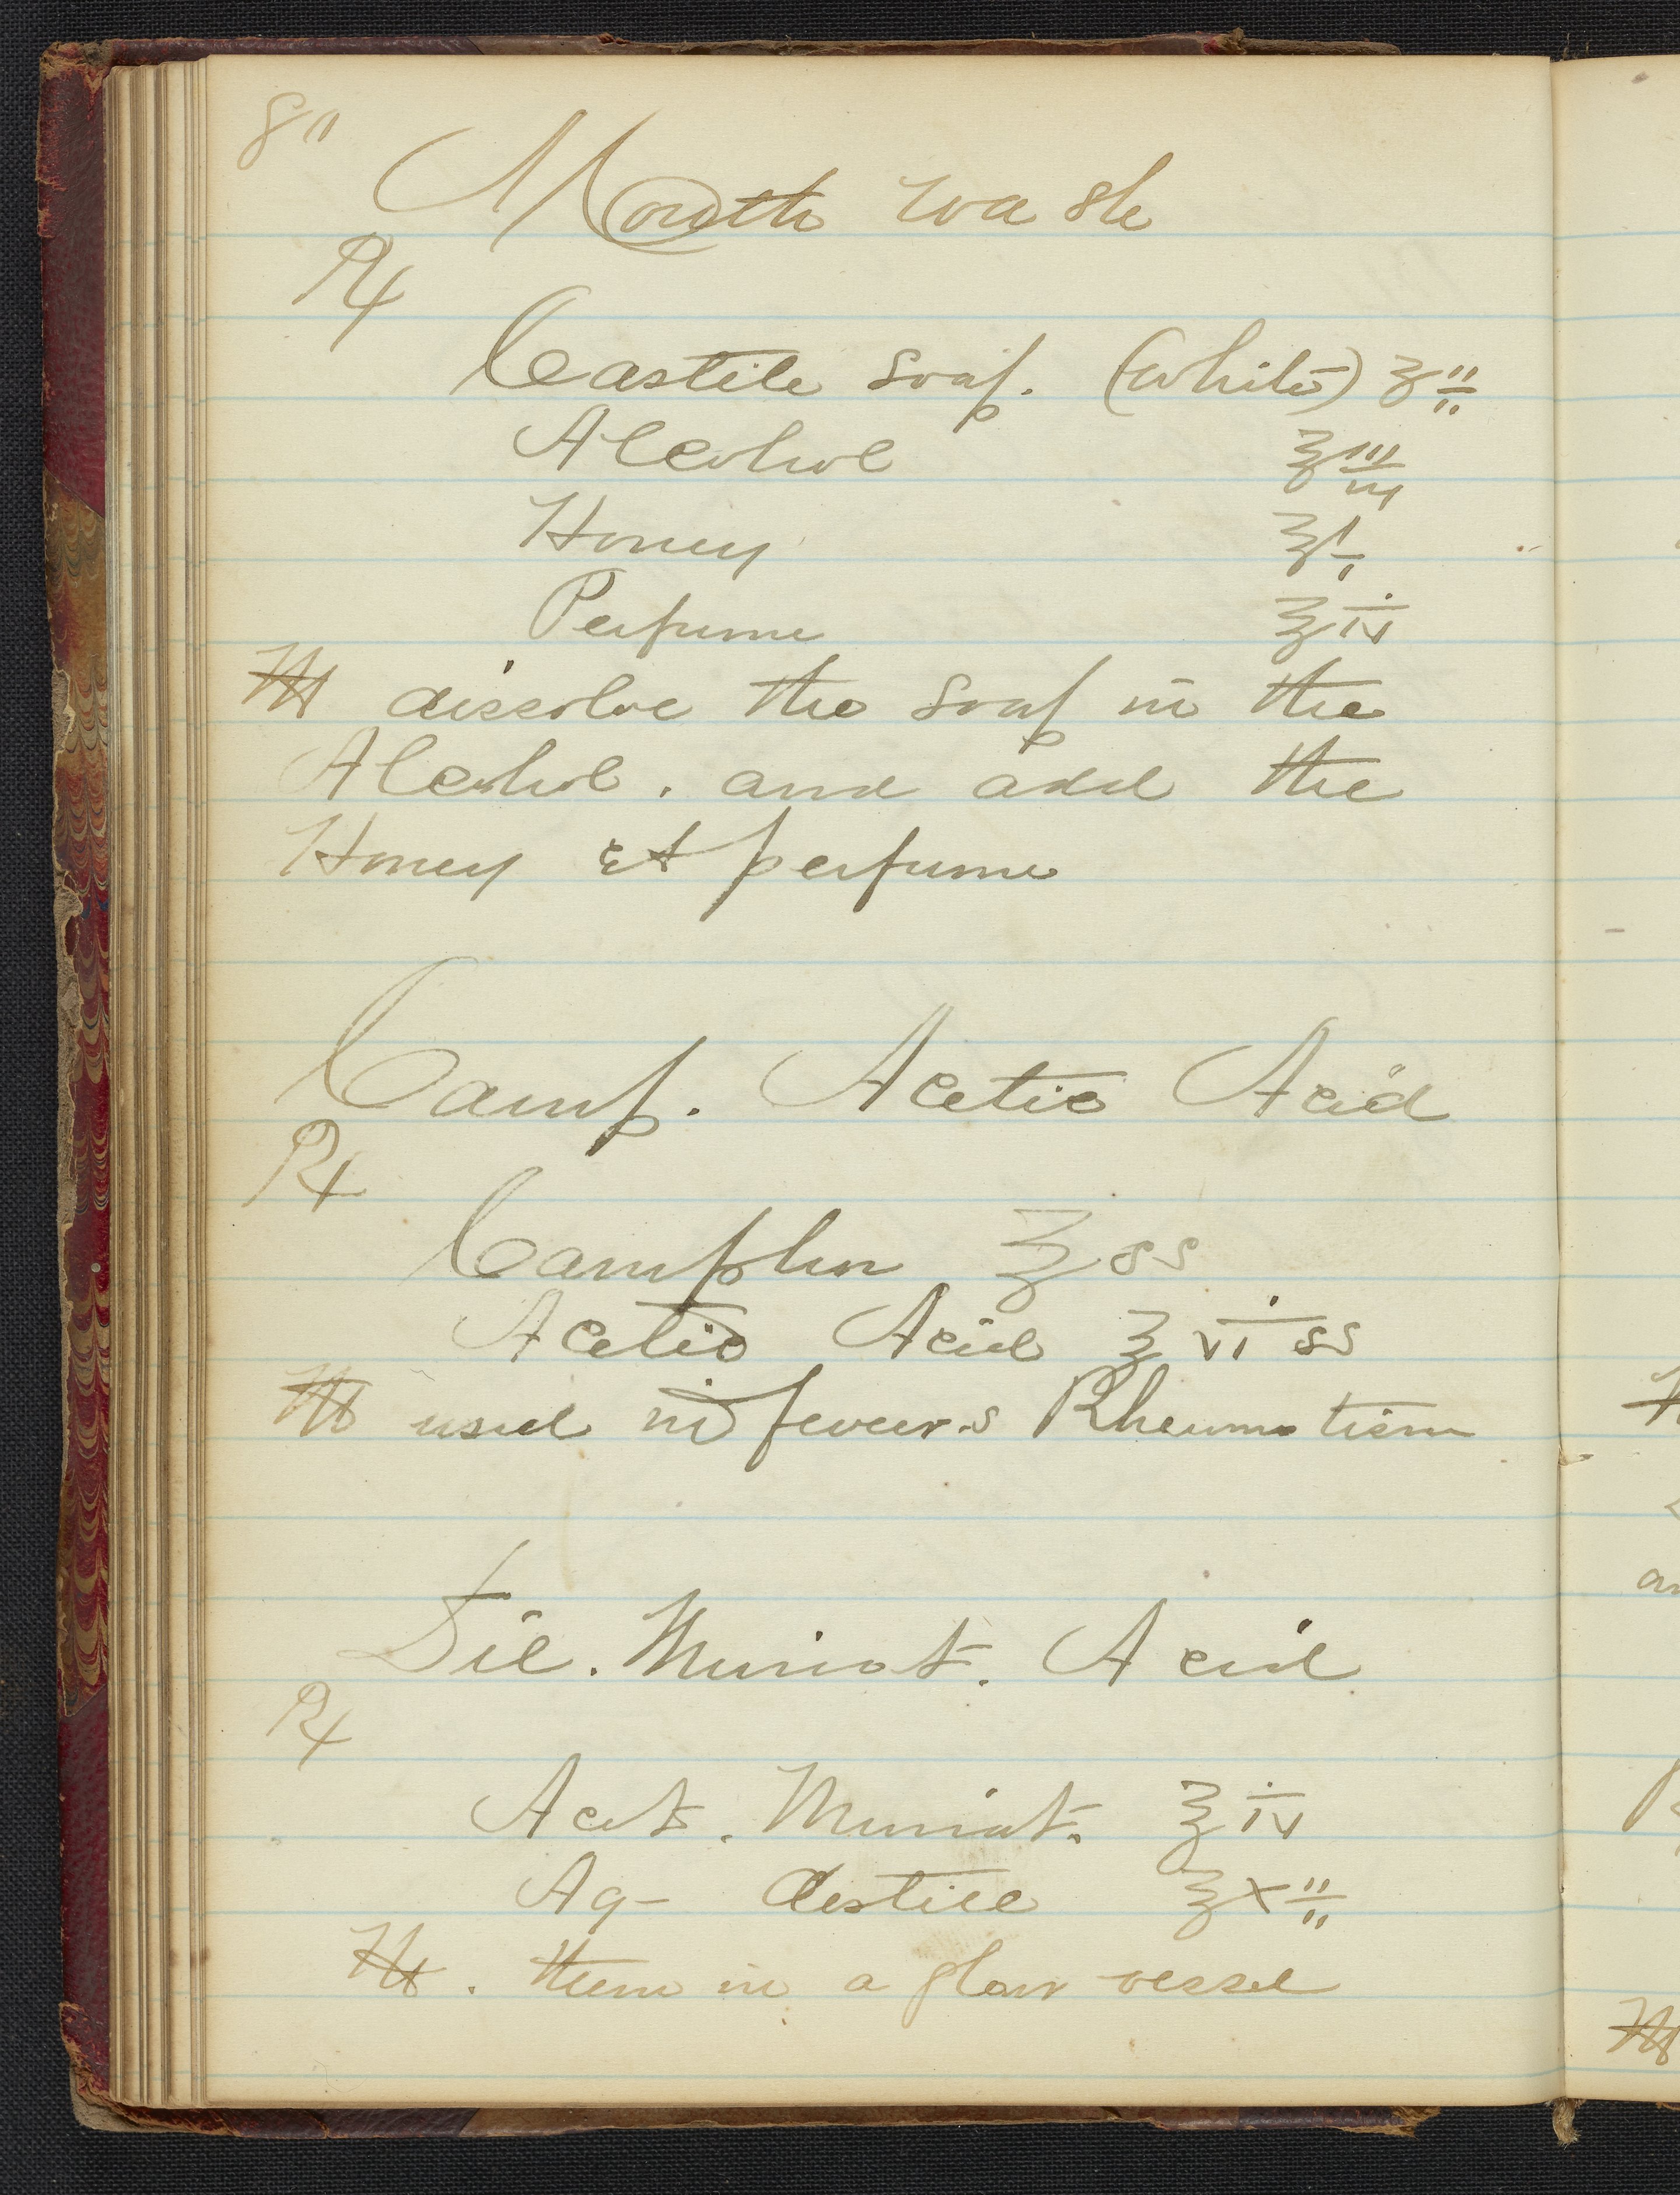 8"
Mouth wash
℞
Castile Soap. (white) ℥ ii
Alcohol ℥ iii
Honey ℥ i
Perfume ℥ iv
M dissolve the Soap in the
Alcohol. and add the
Honey et perfume
Camp. Acetic Acid
℞
Camphor ℥ ss
Acetic Acid ℥ vi ss
M used in fevers Rheumatism
Dil. Muriat. Acid
℞
Acet. Muriat. ℥ iv
Aq- destill ℥ xii
M. them in a glass vessel